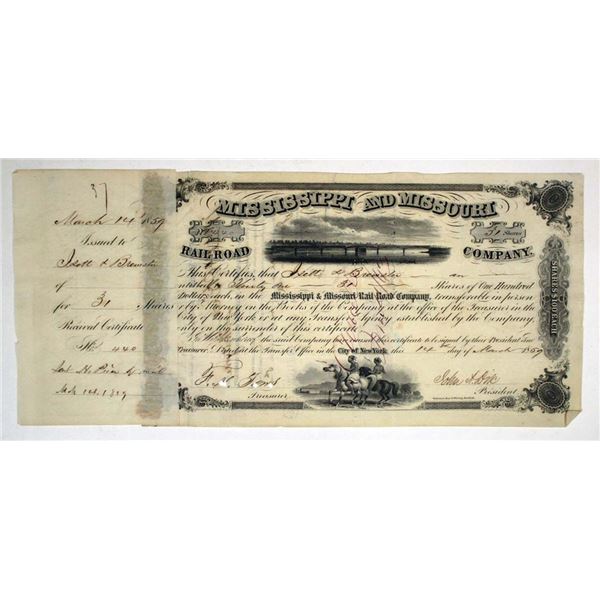 37
March 14 1859
Issued to
of
for 31 Shares
Receival Certificate
No. 440
MISSISSIPPI AND MISSOURI
31 Shares
RAIL-ROAD COMPANY.
This Certifies, that
entitled to Thirty One 31 Shares of One Hundred
Dollars each, in the Mississippi & Missouri Rail Road Company, transferable in person
or by Attorney on the Books of the Company at the office of the Treasurer in the
City of New York or at any Transfer Agency established by the Company
only on the surrender of this certificate.
the said Company have caused this certificate to be signed by their President and
Treasurer. Dated at the Transfer Office in the City of New York, this 14th day of March 1859
John A. Dix
Treasurer President
SHARES $100 EACH